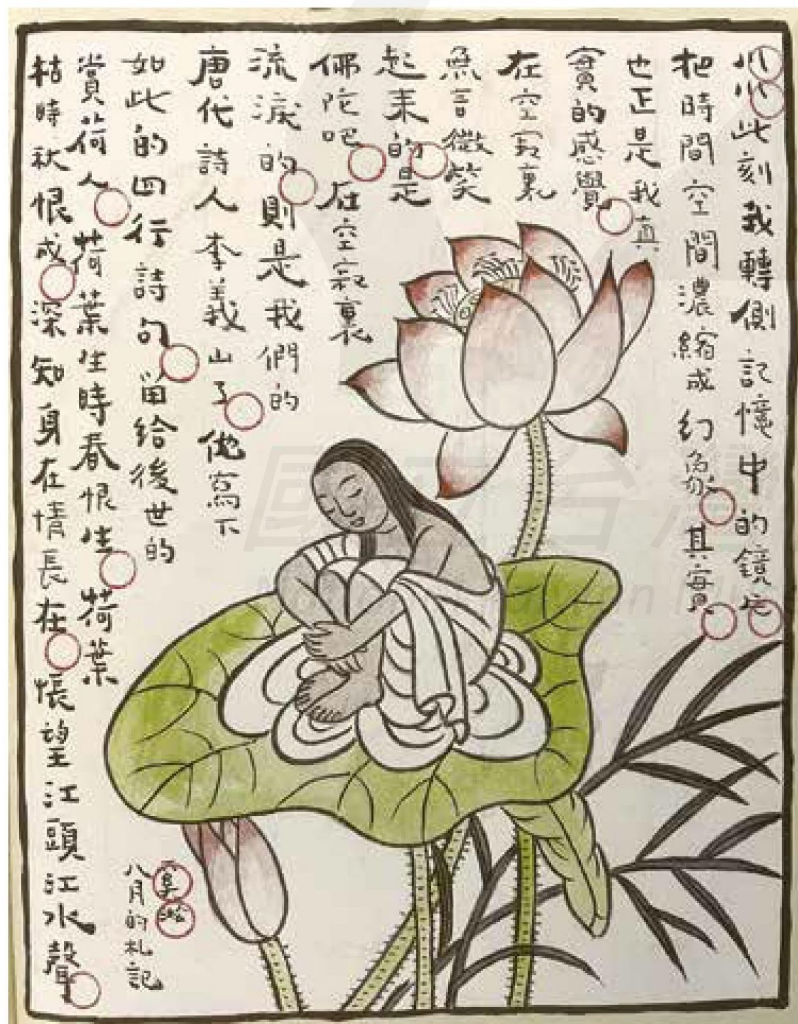 此刻我轉側記憶中的鏡
把時間空間濃縮成幻象 其實
也正是我真
實的感覺
在空寂裏
無言微笑
起来的是
佛陀吧 在空寂裏
流淚的則是我們的
唐代詩人李義山了 他寫下
如此的四行詩句 留給後世的
賞荷人 荷葉生時春恨生 荷葉
枯時秋恨成 深知身在情長在 悵望江頭江水聲
奚淞
八月的札記